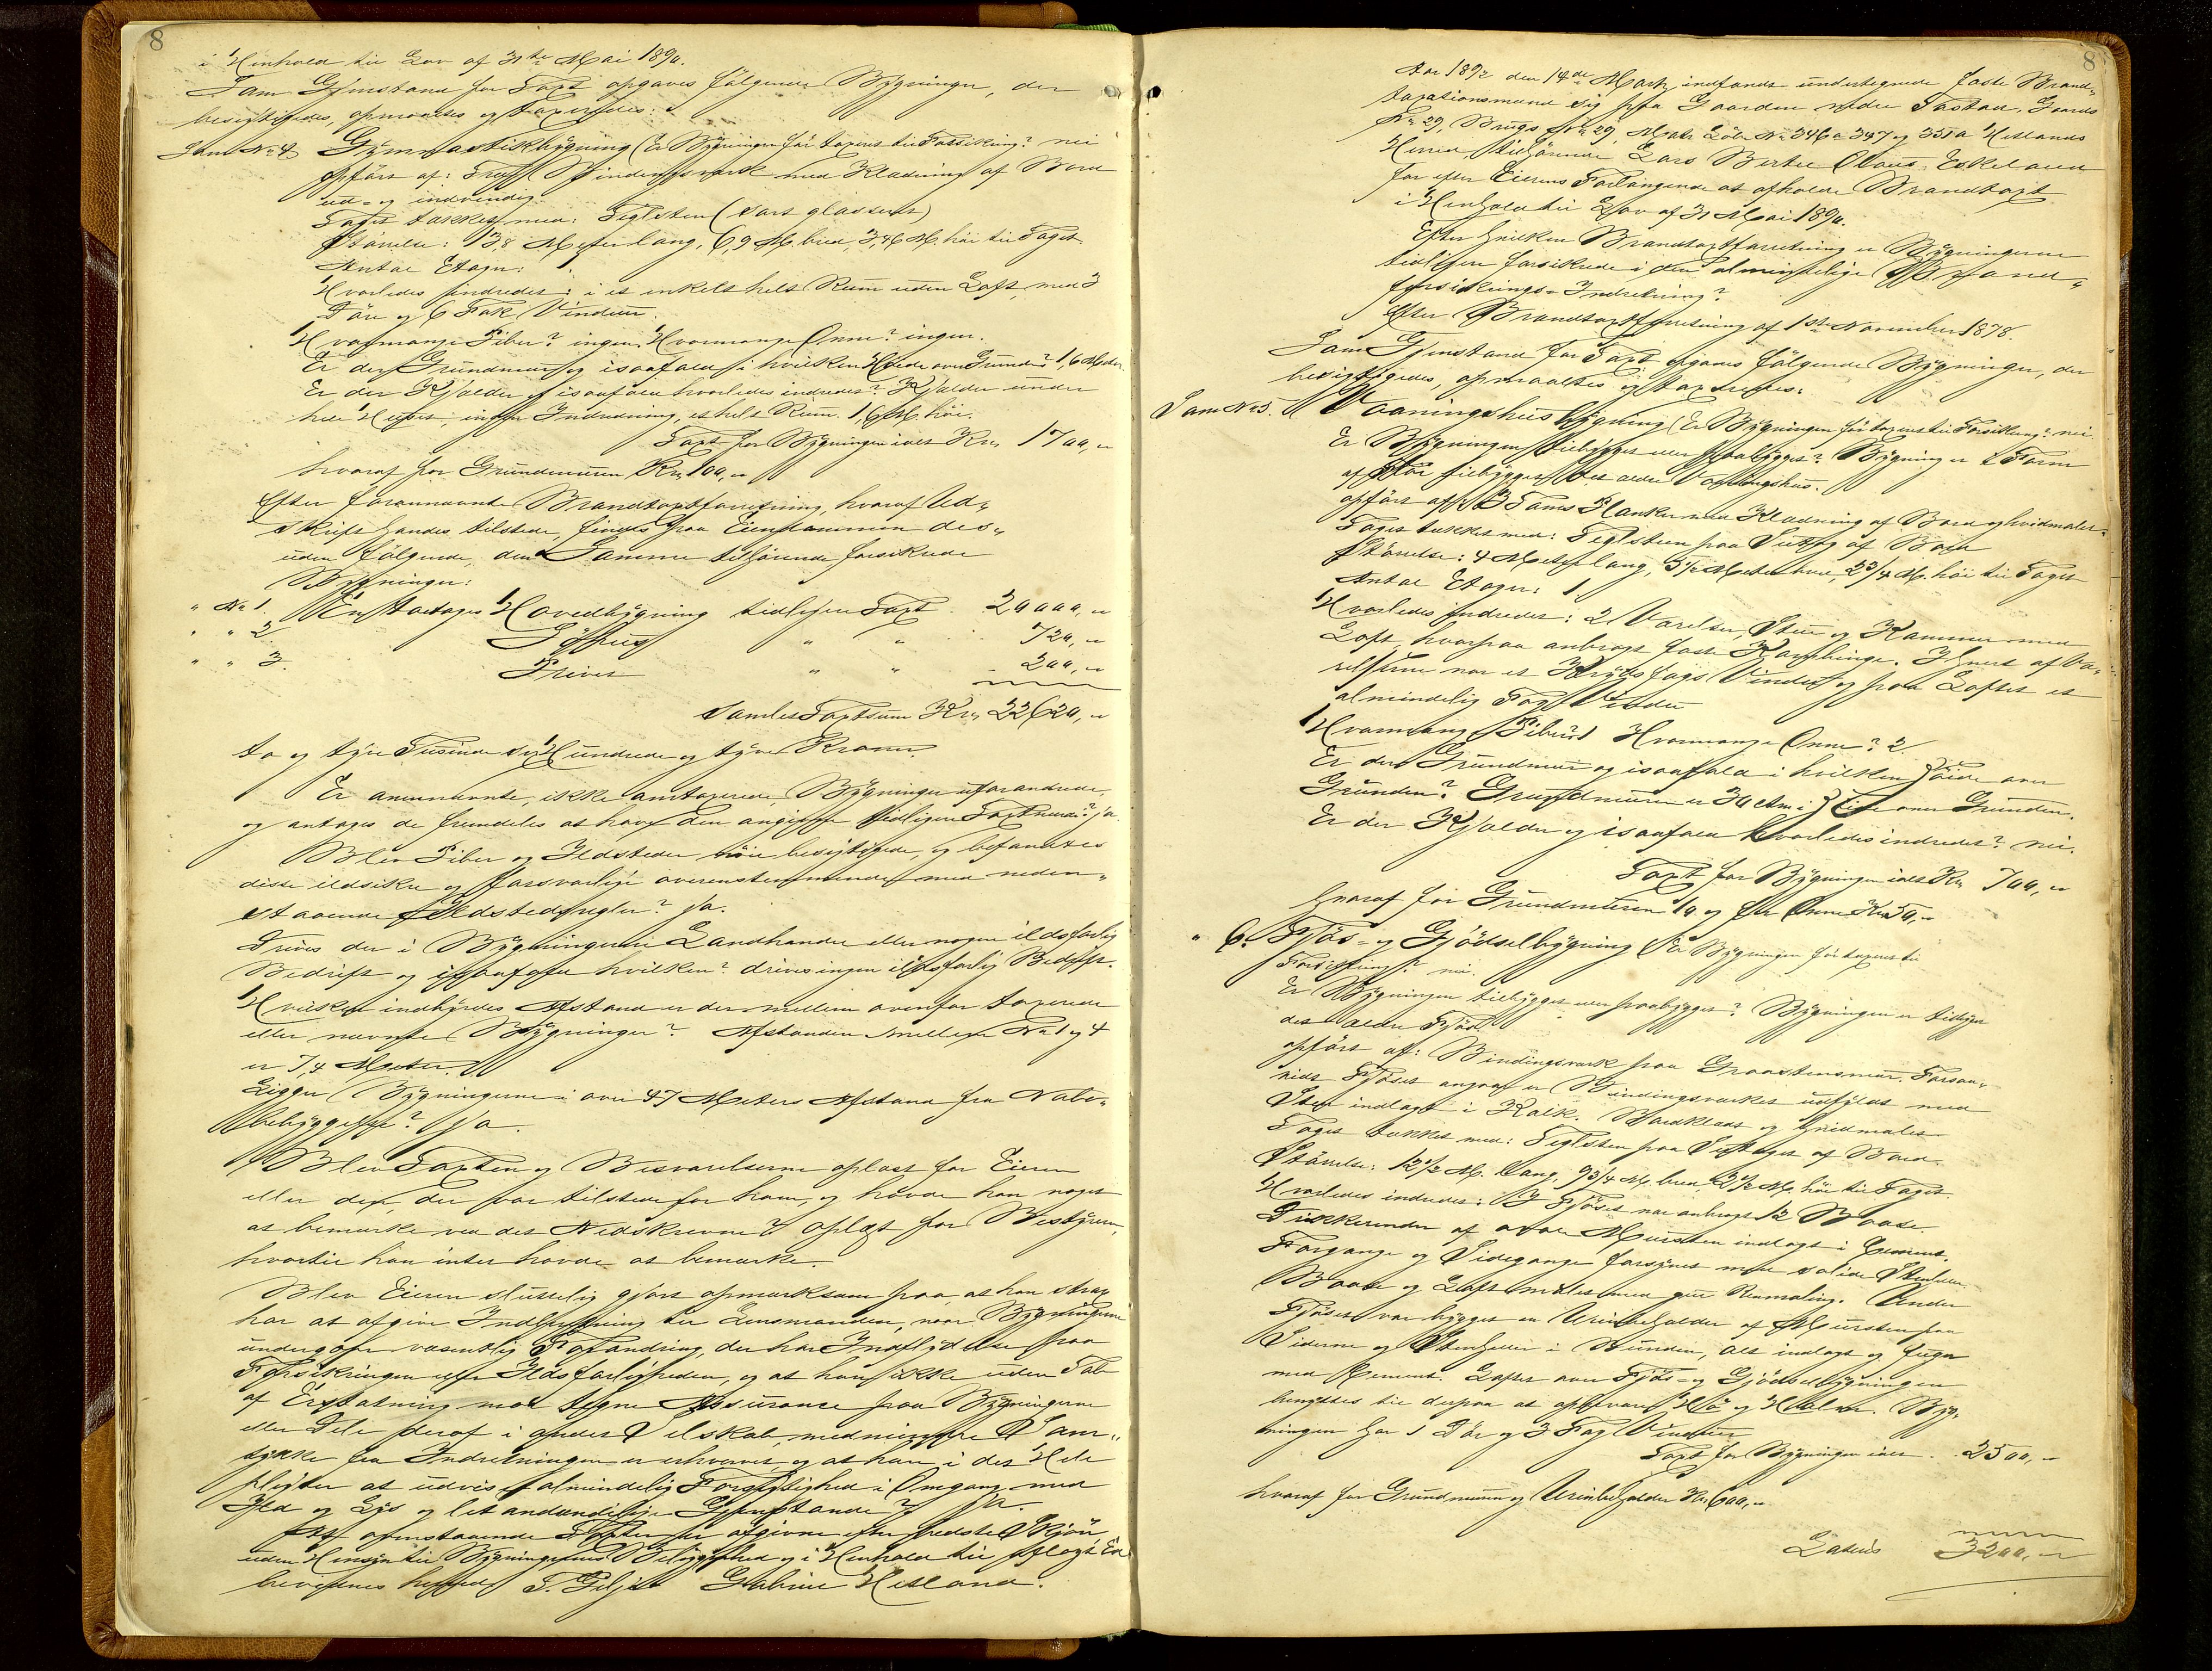 8
i Henhold til Lov af 31te Mai 1890.
Som Gjenstand for Taxt opgaves følgende Bygninger, der
besigtigedes, opmaaltes og taxeredes:
Som No 4 Gymnastikbygning (Er Bygningen før taxeret til Forsikring? nei
opført af: Bindingsverk med Klædning af Bord
ud- og indvendig.
Taget tækket med: Teglsten (sort glasseret)
Størrelse: 13,8 Meter lang, 6,9 M. bred, 3,46 M. høi til Taget
Antal Etager: 1
Hvorledes indredet: i et enkelt helt Rum uden Loft, med 3
Døre og 6 Fak Vinduer.
Hvormange Piber? ingen. Hvormange Ovne? ingen.
Er der Grundmur og isaafald i hvilken Høide over Grunden? 1,6 Meter
Er der Kjælder og isaafald hvorledes indredet? Kjælder under
hele Huset, ingen Indredning, et helt Rum 1,6 M. høi.
Taxt for Bygningen ialt Kr. 1700,"
hvoraf for Grundmuren Kr. 100,"
Efter forannævnte Brandtaxtforretning, hvoraf Ud-
skrift havdes tilstede, findes paa Eiendommen des-
uden følgende, den Samme tilhørende forsikrede
Bygninger:
" No 1. En toetages Hovedbygning tidligere Taxt 20000,"
" " 2 " " 720,"
" " 3. Privet " " 200,"
Samlet Taxtsum Kr. 22620,"
to og tyve Tusinde sex Hundrede og tyve Kroner.
Er ovennævnte, ikke omtaxerede, Bygninger uforandrede,
og antages de fremdeles at have den angivne tidligere Taxtværdi? ja.
Blev Piber og Ildsteder nøie besigtigede, og befandtes
disse ildsikre og forsvarlige overensstemmende med neden-
staaende Ildstedsregler? ja.
Drives der i Bygningerne Landhandel eller nogen ildsfarlig
Bedrift og isaafald hvilken? drives ingen ildsfarlig Bedrift.
Hvilken indbyrdes Afstand er der mellem ovenfor taxerede
eller nævnte Bygninger? Afstanden mellem No 1 og 4
er 7,4 Meter.
Ligger Bygningerne i over 47 Meters Afstand fra Nabo-
bebyggelse? ja.
Blev Taxten og Besvarelserne oplæst for Eieren
eller den, der var tilstede for ham, og havde han noget
at bemærke ved det Nedskrevne? Oplæst for Bestyreren,
hvortil han intet havde at bemærke.
Blev Eieren slutelig gjort opmærksom paa, at han strax
har at afgive Indberetning til Lensmanden, naar Bygningerne
undergaar væsentlig Forandring, der har Indflydelse paa
Forsikringen eller Ildsfarligheden, og at han ikke uden Tab
af Erstatning maa tegne Assurance paa Bygningerne
eller Dele deraf i andet Selskab, medmindre Sam-
tykke fra Indretningen er erhvervet, og at han i det Hele
pligter at udvise almindelig Forsigtighed i Omgang med
Ild og Lys og let antændelige Gjenstande? ja.
At ovenstaaende Taxter er afgivne efter bedste Skjøn,
uden Hensyn til Bygningernes Beliggenhed og i Henhold til aflagt Ed
bevidnes herved T. Giljes Gabriel Hetland.
8
Aar 1892 den 14de Marts indfandt undertegnede faste Brand-
taxationsmænd sig paa Gaarden nedre Tastad, Gaards
No 29, Brugs No 29, Matr. Løbe No 346a 347 og 351a Hetlands
Herred, tilhørende Lars Bertel Claus. Eskeland
for efter Eierens Forlangende at afholde Brandtaxt
i Henhold til Lov af 31 Mai 1890.
Efter hvilken Brandtaxtforretning er Bygningerne
tidligere forsikrede i den almindelige Brand-
forsikrings-Indretning?
Efter Brandtaxtforretning af 1ste November 1878.
Som Gjenstand for Taxt opgaves følgende Bygninger, der
besigtigedes, opmaaltes og taxeredes:
Som No 5. Vaaningshusbygning (Er Bygningen før taxeret til Forsikring? nei
Er Bygningen tilbygget eller paabygget? Bygning er i Form
af tilbygget det ældre Vaaningshus.
opført af: 3 Toms Planker med Klædning af Bord og hvidmalet.
Taget tækket med: Teglsten paa Sutag af Bord
Størrelse: 4 Meter lang, 5 1/2 Meter bred, 2 3/4 M. høi til Taget
Antal Etager: 1
Hvorledes indredet: 2 Værelser, Stue og Kammer med
Loft, hvorpaa anbragt faste. I hvert af Væ-
relserne var et Krydsfags Vindu og paa Loftet et
almindelig Fag Vindu
Hvormange Piber? 1 Hvormange Ovne? 2
Er der Grundmur og isaafald i hvilken Høide over
Grunden? Grundmuren er 30 Ctm i Høide over Grunden.
Er der Kjælder og isaafald hvorledes indredet? nei.
Taxt for Bygningen ialt Kr. 700,"
hvoraf for Grundmuren 10 og for Ovne Kr. 50,"
" 6. Fjøs- og Gjødselbygning (Er Bygningen før taxeret til
Forsikring? nei.
Er Bygningen tilbygget eller paabygget? Bygningen er tilbygget
det ældre Fjøs.
opført af: Bindingsværk paa Graastensmur. Forsaa-
vidt Fjøset angaar er Bindingsværket udfyldt med
Sten indlagt i Kalk. Bordklædt og hvidmalet
Taget tækket med: Teglsten paa Sutaget af Bord.
Størrelse: 12 1/2 M. lang, 9 3/4 M. bred, 2 1/2 M. høi til Taget.
Hvorledes indredet: I Fjøset var anbragt 12 Baase.
af Mursten indlagt i Cement.
Forgange og Sidegange forsynet med solide Stenheller.
Baase og Loft malet med. Under
Fjøset var bygget en Urinbeholder af Mursten paa
Siderne og Stenheller i Bunden, alt indlagt og fuget
med Cement. Loftet over Fjøs- og Gjødselbygningen
benyttes til derpaa at opbevare Hø og Halm. Byg-
ningen har 1 Dør og 3 Fag Vinduer
Taxt for Bygningen ialt 2500,"
hvoraf for Grundmuren og Urinbeholder Kr. 600,"
Lateris 3200,"